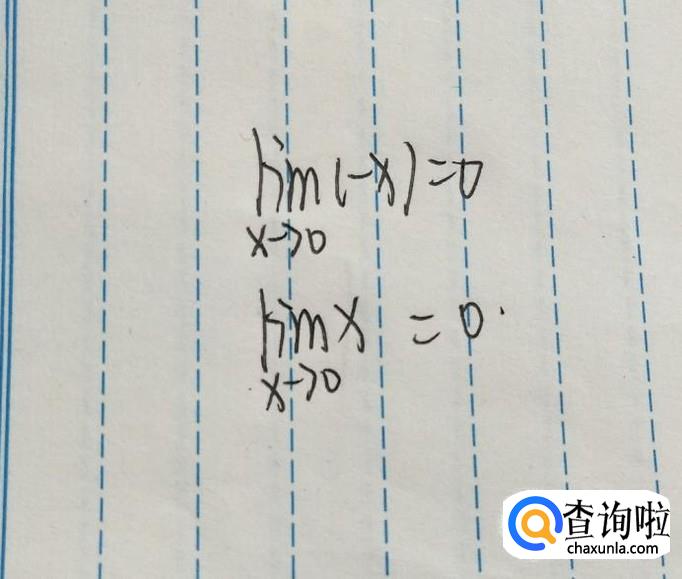 lim(-x)=0
x→0
lim x = 0.
x→0
查询啦
chaxunla.com